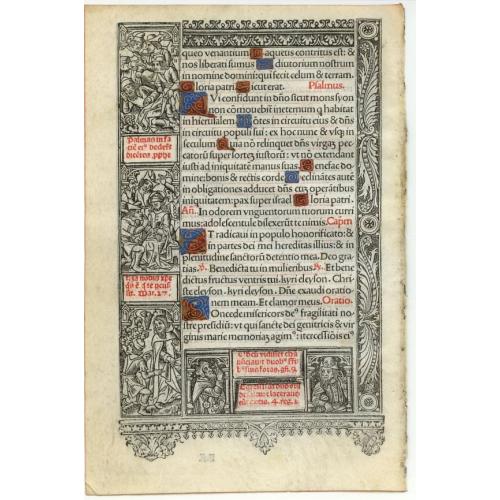 queo venantium: Laqueus contritus est: &
nos liberati sumus Adiutorium nostrum
in nomine domini: qui fecit celum & terram.
Gloria patri. Sicut erat. Psalmus.
Qui confidunt in dño sicut mons syon
non cõmouebiť ineternum q habitat
in hierusalem Mõtes in circuitu eius & dñs
in circuitu populi sui: ex hoc nunc & vsq̃ in
seculum Quia nõ relinquet dñs virgaȝ pec
catoȝ super sorteȝ iustoȝ: vt nõ extendant
iusti ad iniquitatē manus suas. Benefac do
mine: bonis & rectis corde Declinātes autē
in obligationes adducet dñs cuȝ operātibus
iniquitatem: pax super israel Gloria patri.
Añ. In odorem vnguentorum tuorum curri
mus: adolescentule dilexerūt te nimis. Capm
Et radicaui in populo honorificato: &
in partes dei mei hereditas illius: & in
plenitudine sanctorū detentio mea. Deo gra
tias. ℣. Benedicta tu in mulieribus ℟. Et bene
dictus fructus ventris tui. kyri eleyson. Chri
ste eleyson. kyri eleyson. Dñe exaudi oratio
nem meam. Et clamor meus. Oratio.
Concede misericors deꝰ fragilitati no
stre presidiū: vt qui sancte dei genitricis & vir
ginis marie memoriaȝ agimꝰ: intercessiõis eiꝰ